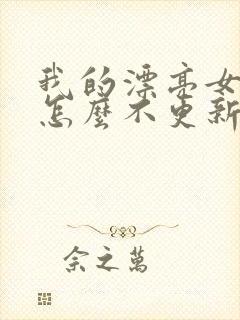 我的漂亮女
怎麼不更新
余之萬